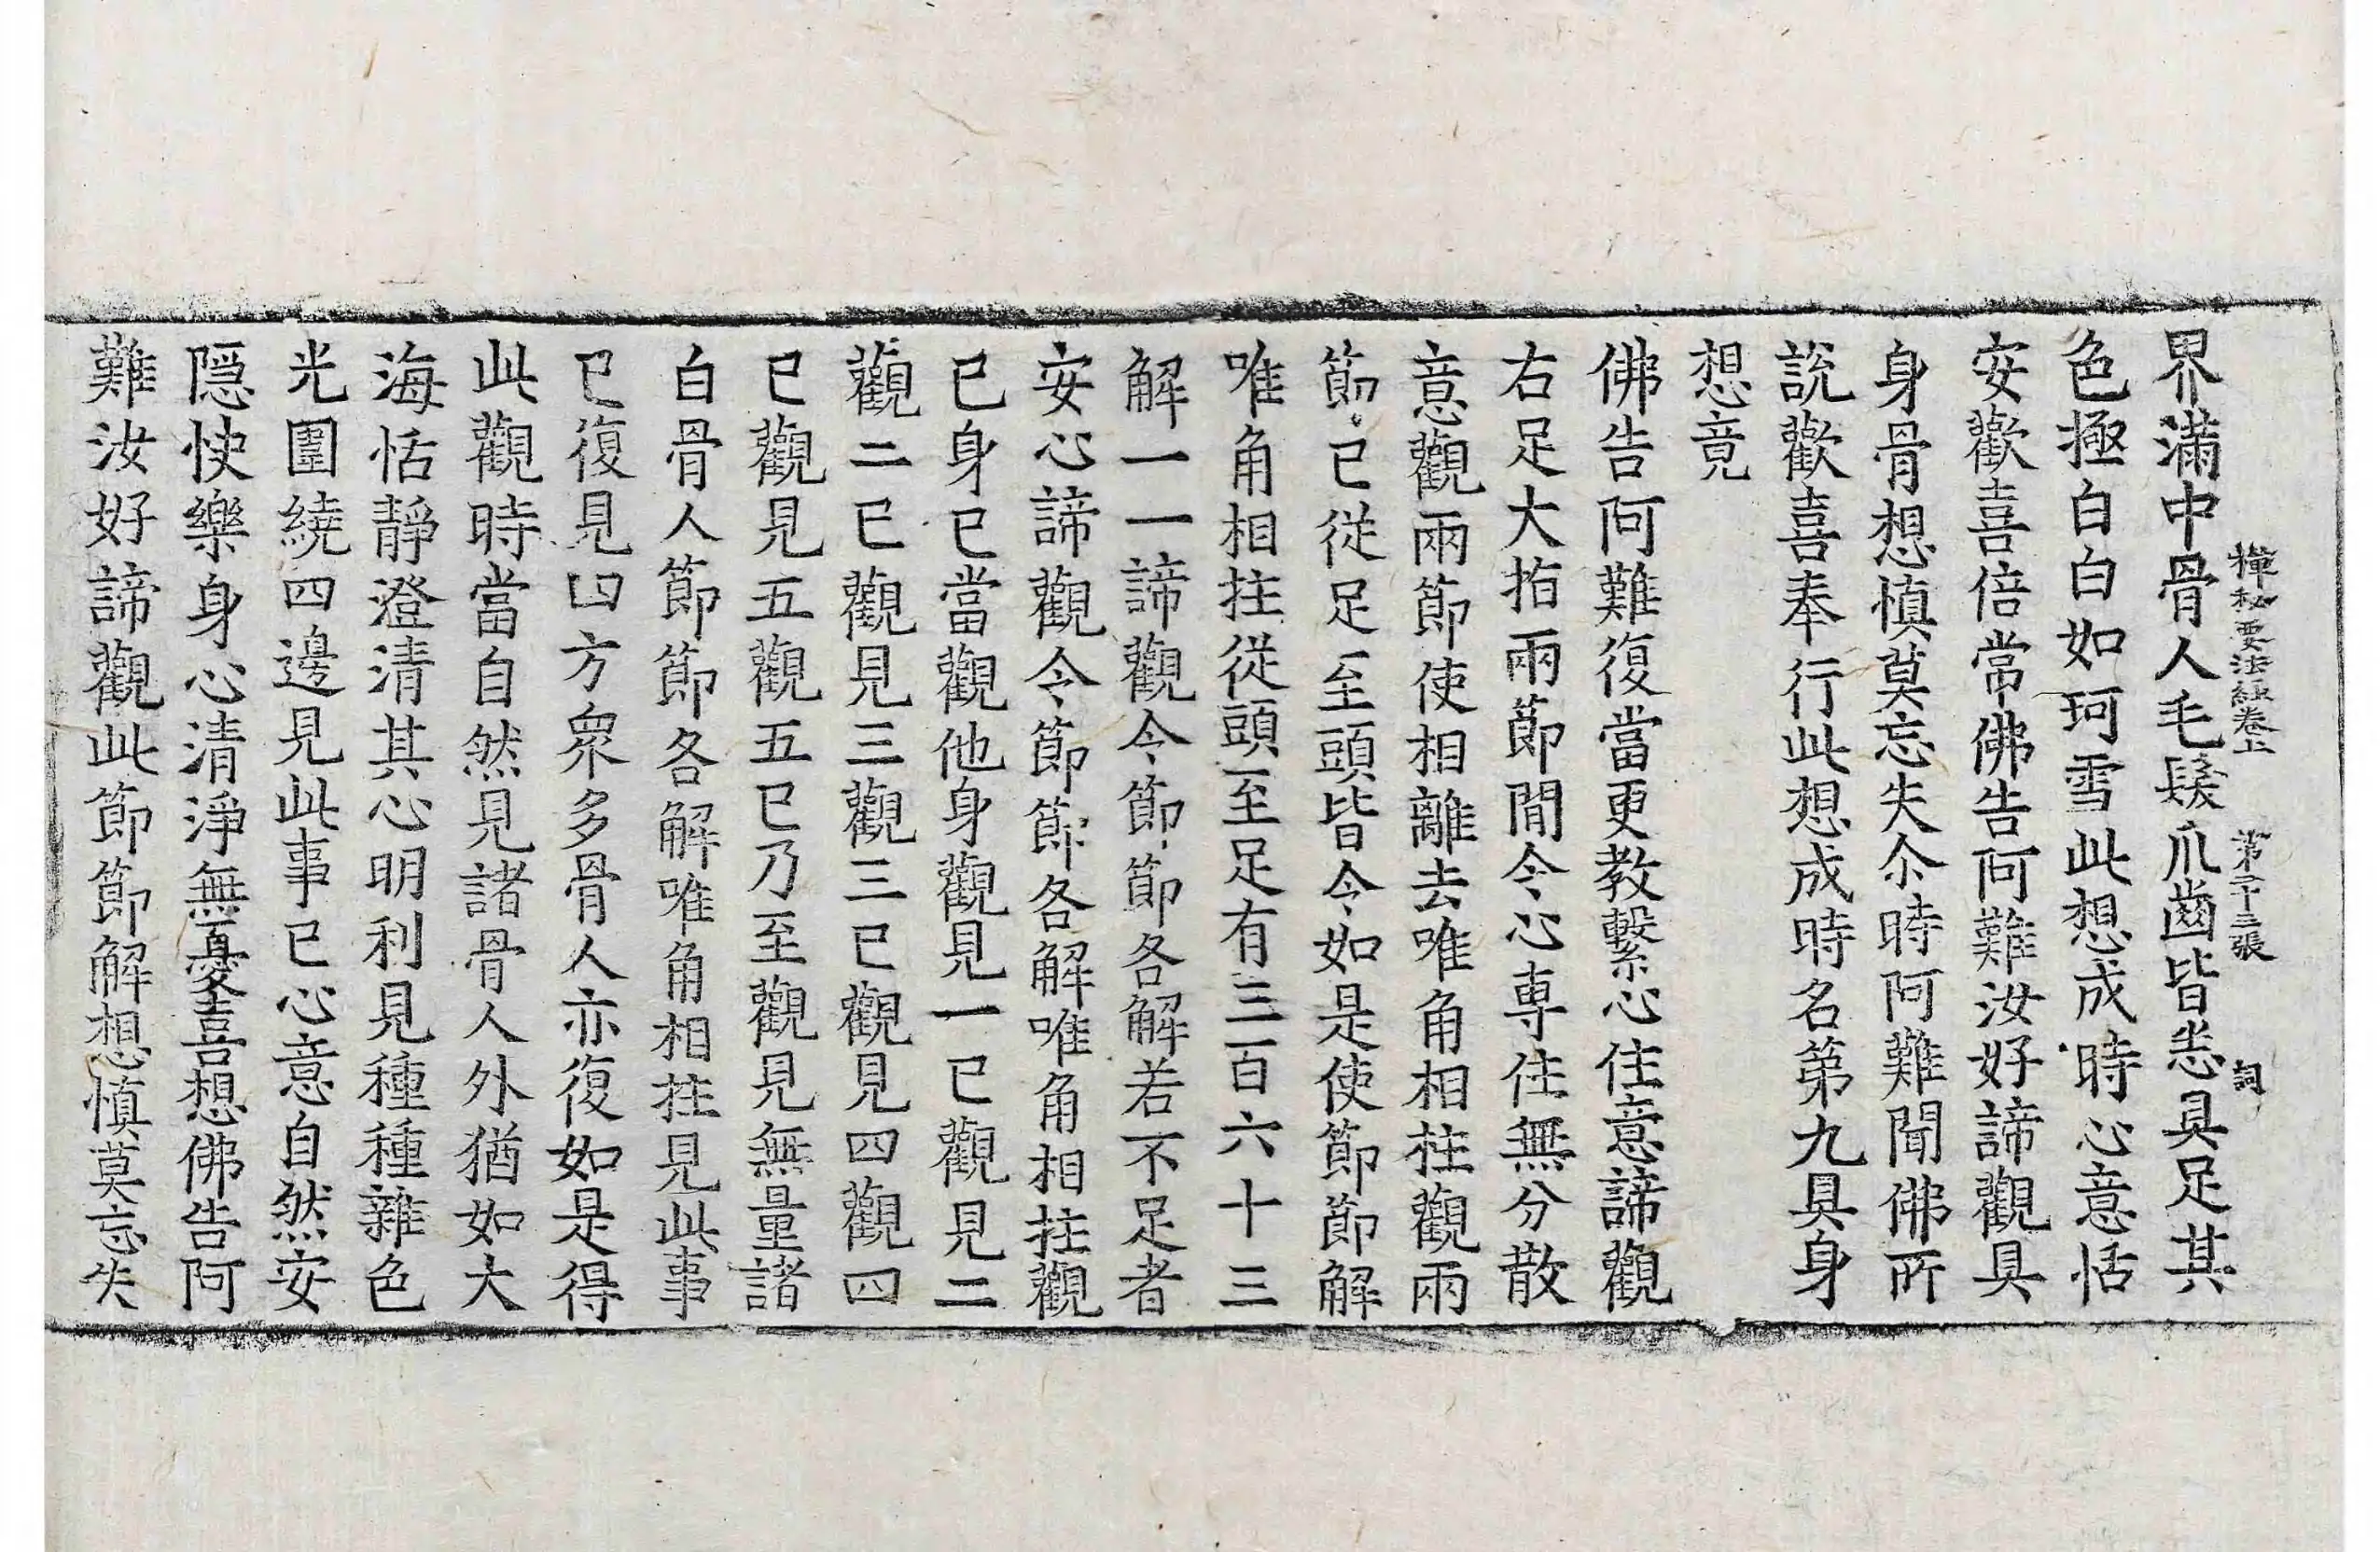 禪秘要法經卷上　第二十三張　詞
界滿中骨人毛髮爪齒皆悉具足其
色極白白如珂雪此想成時心意恬
安歡喜倍常佛告阿難汝好諦觀具
身骨想慎莫忘失尒時阿難聞佛所
說歡喜奉行此想成時名第九具身
想竟
佛告阿難復當更教繫心住意諦觀
右足大指兩節間令心專住無分散
意觀兩節使相離去唯角相拄觀兩
節已從足至頭皆令如是使節節解
唯角相拄從頭至足有三百六十三
解一一諦觀令節節各解若不足者
安心諦觀令節節各解唯角相拄觀
已身已當觀他身觀見一已觀見二
觀二已觀見三觀三已觀見四觀四
已觀見五觀五已乃至觀見無量諸
白骨人節節各解唯角相拄見此事
已復見四方衆多骨人亦復如是得
此觀時當自然見諸骨人外猶如大
海恬靜澄清其心明利見種種雜色
光圍繞四邊見此事已心意自然安
隠快樂身心清淨無憂喜想佛告阿
難汝好諦觀此節節解想慎莫忘失